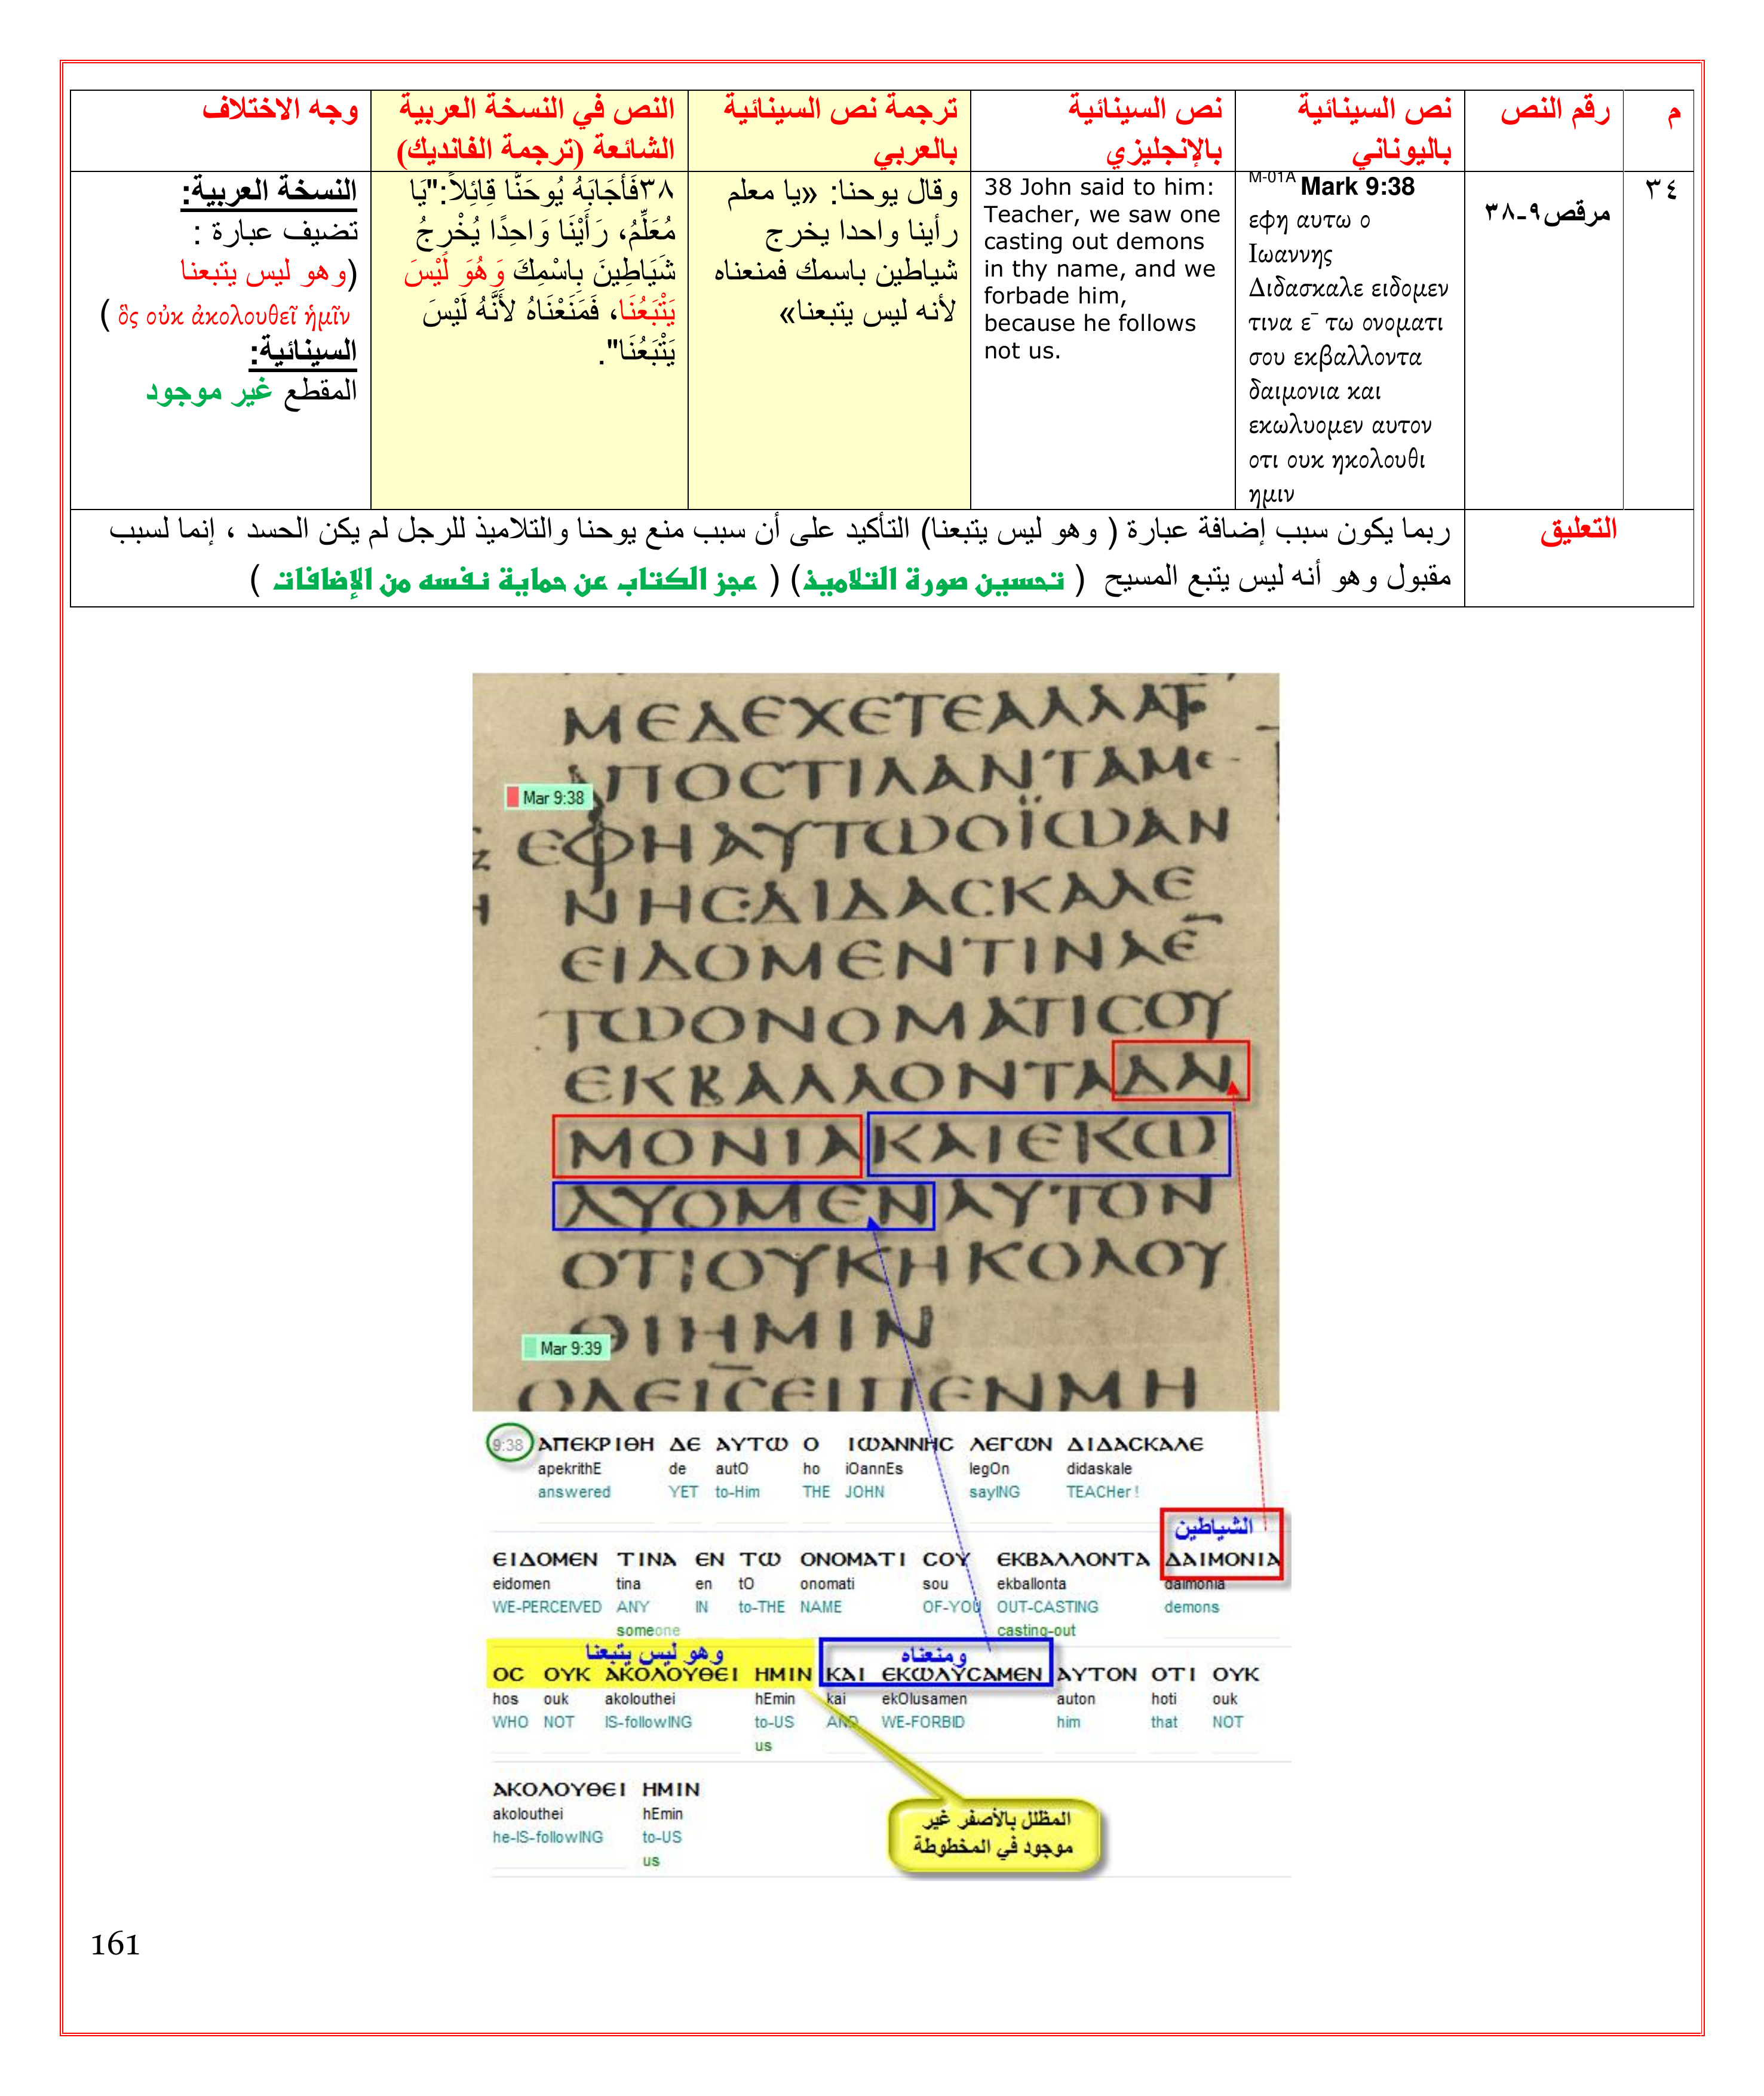 م
رقم النص
نص السينائية
باليوناني
نص السينائية
بالإنجليزي
ترجمة نص السينائية
بالعربي
النص في النسخة العربية
الشائعة (ترجمة الفانديك)
وجه الاختلاف
٣٤
مرقص٩-٣٨
M-01A Mark 9:38
εφη αυτω ο
Ιωαννης
Διδασκαλε ειδομεν
τινα ε¯ τω ονοματι
σου εκβαλλοντα
δαιμονια και
εκωλυομεν αυτον
οτι ουκ ηκολουθι
ημιν
38 John said to him:
Teacher, we saw one
casting out demons
in thy name, and we
forbade him,
because he follows
not us.
وقال يوحنا: «يا معلم
رأينا واحدا يخرج
شياطين باسمك فمنعناه
لأنه ليس يتبعنا»
٣٨فَأَجَابَهُ يُوحَنَّا قِائِلاً:"يَا
مُعَلِّمُ، رَأَيْنَا وَاحِدًا يُخْرِجُ
شَيَاطِينَ بِاسْمِكَ وَهُوَ لَيْسَ
يَتْبَعُنَا، فَمَنَعْنَاهُ لأَنَّهُ لَيْسَ
يَتْبَعُنَا".
النسخة العربية:
تضيف عبارة :
(وهو ليس يتبعنا
ὃς οὐκ ἀκολουθεῖ ἡμῖν )
السينائية:
المقطع غير موجود
التعليق
ربما يكون سبب إضافة عبارة ( وهو ليس يتبعنا) التأكيد على أن سبب منع يوحنا والتلاميذ للرجل لم يكن الحسد ، إنما لسبب
مقبول وهو أنه ليس يتبع المسيح ( تحسين صورة التلاميذ) ( عجز الكتاب عن حماية نفسه من الإضافات )
ΜΕΔΕΧΕΤΕΑΛΛΑΤ
ΑΠΟϹΤΙΛΑΝΤΑΜε
Mar 9:38
ΕΦΗΑΥΤΩΟΪΩΑΝ
ΝΗϹΔΙΔΑϹΚΑΛΕ
ΕΙΔΟΜΕΝΤΙΝΑΕ¯
ΤΩΟΝΟΜΑΤΙϹΟΥ
ΕΚΒΑΛΛΟΝΤΑΔΑΙ
ΜΟΝΙΑΚΑΙΕΚΩ
ΛΥΟΜΕΝΑΥΤΟΝ
ΟΤΙΟΥΚΗΚΟΛΟΥ
ΘΙΗΜΙΝ
Mar 9:39
ΟΔΕΙϹΕΙΠΕΝΜΗ
9:38 ΑΠΕΚΡΙΘΗ ΔΕ ΑΥΤΩ Ο ΙΩΑΝΝΗϹ ΛΕΓΩΝ ΔΙΔΑϹΚΑΛΕ
apekrithE de autO ho iOannEs legOn didaskale
answered YET to-Him THE JOHN sayING TEACHer !
الشياطين
ΕΙΔΟΜΕΝ ΤΙΝΑ ΕΝ ΤΩ ΟΝΟΜΑΤΙ ϹΟΥ ΕΚΒΑΛΛΟΝΤΑ ΔΑΙΜΟΝΙΑ
eidomen tina en tO onomati sou ekballonta daimonia
WE-PERCEIVED ANY IN to-THE NAME OF-YOU OUT-CASTING demons
someone casting-out
وهو ليس يتبعنا ومنعناه
ΟϹ ΟΥΚ ΑΚΟΛΟΥΘΕΙ ΗΜΙΝ ΚΑΙ ΕΚΩΛΥϹΑΜΕΝ ΑΥΤΟΝ ΟΤΙ ΟΥΚ
hos ouk akolouthei hEmin kai ekOlusamen auton hoti ouk
WHO NOT IS-followING to-US AND WE-FORBID him that NOT
us
ΑΚΟΛΟΥΘΕΙ ΗΜΙΝ
akolouthei hEmin
he-IS-followING to-US
us
المظلل بالأصفر غير
موجود في المخطوطة
161